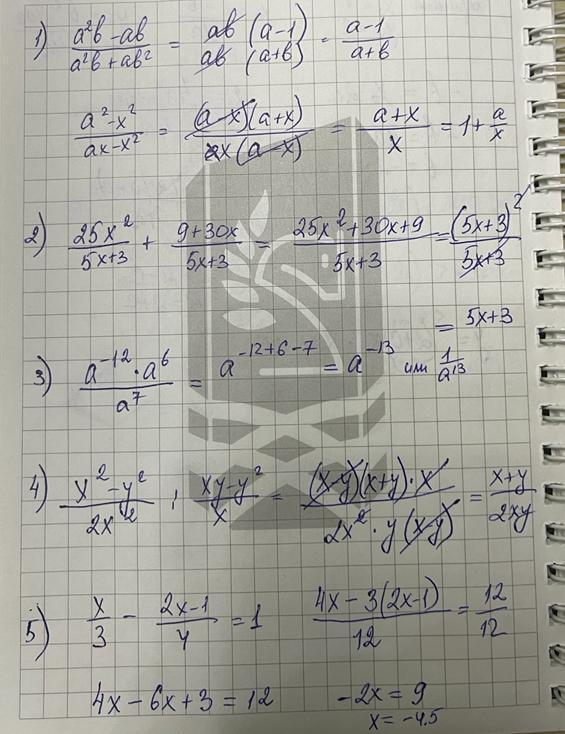 1) (a²b - ab)/(a²b + ab²) = (ab (a-1))/(ab (a+b)) = (a-1)/(a+b)
(a² - x²)/(ax - x²) = ((a-x)(a+x))/(x(a-x)) = (a+x)/x = 1 + a/x
2) 25x²/(5x+3) + (9+30x)/(5x+3) = (25x²+30x+9)/(5x+3) = (5x+3)²/(5x+3)
= 5x+3
3) (a⁻¹² · a⁶)/a⁷ = a⁻¹²⁺⁶⁻⁷ = a⁻¹³ или 1/a¹³
4) (x² - y²)/(2x²) : (xy - y²)/x = ((x-y)(x+y)·x)/(2x²·y(x-y)) = (x+y)/(2xy)
5) x/3 - (2x-1)/4 = 1 (4x - 3(2x-1))/12 = 12/12
4x - 6x + 3 = 12 -2x = 9
x = -4.5